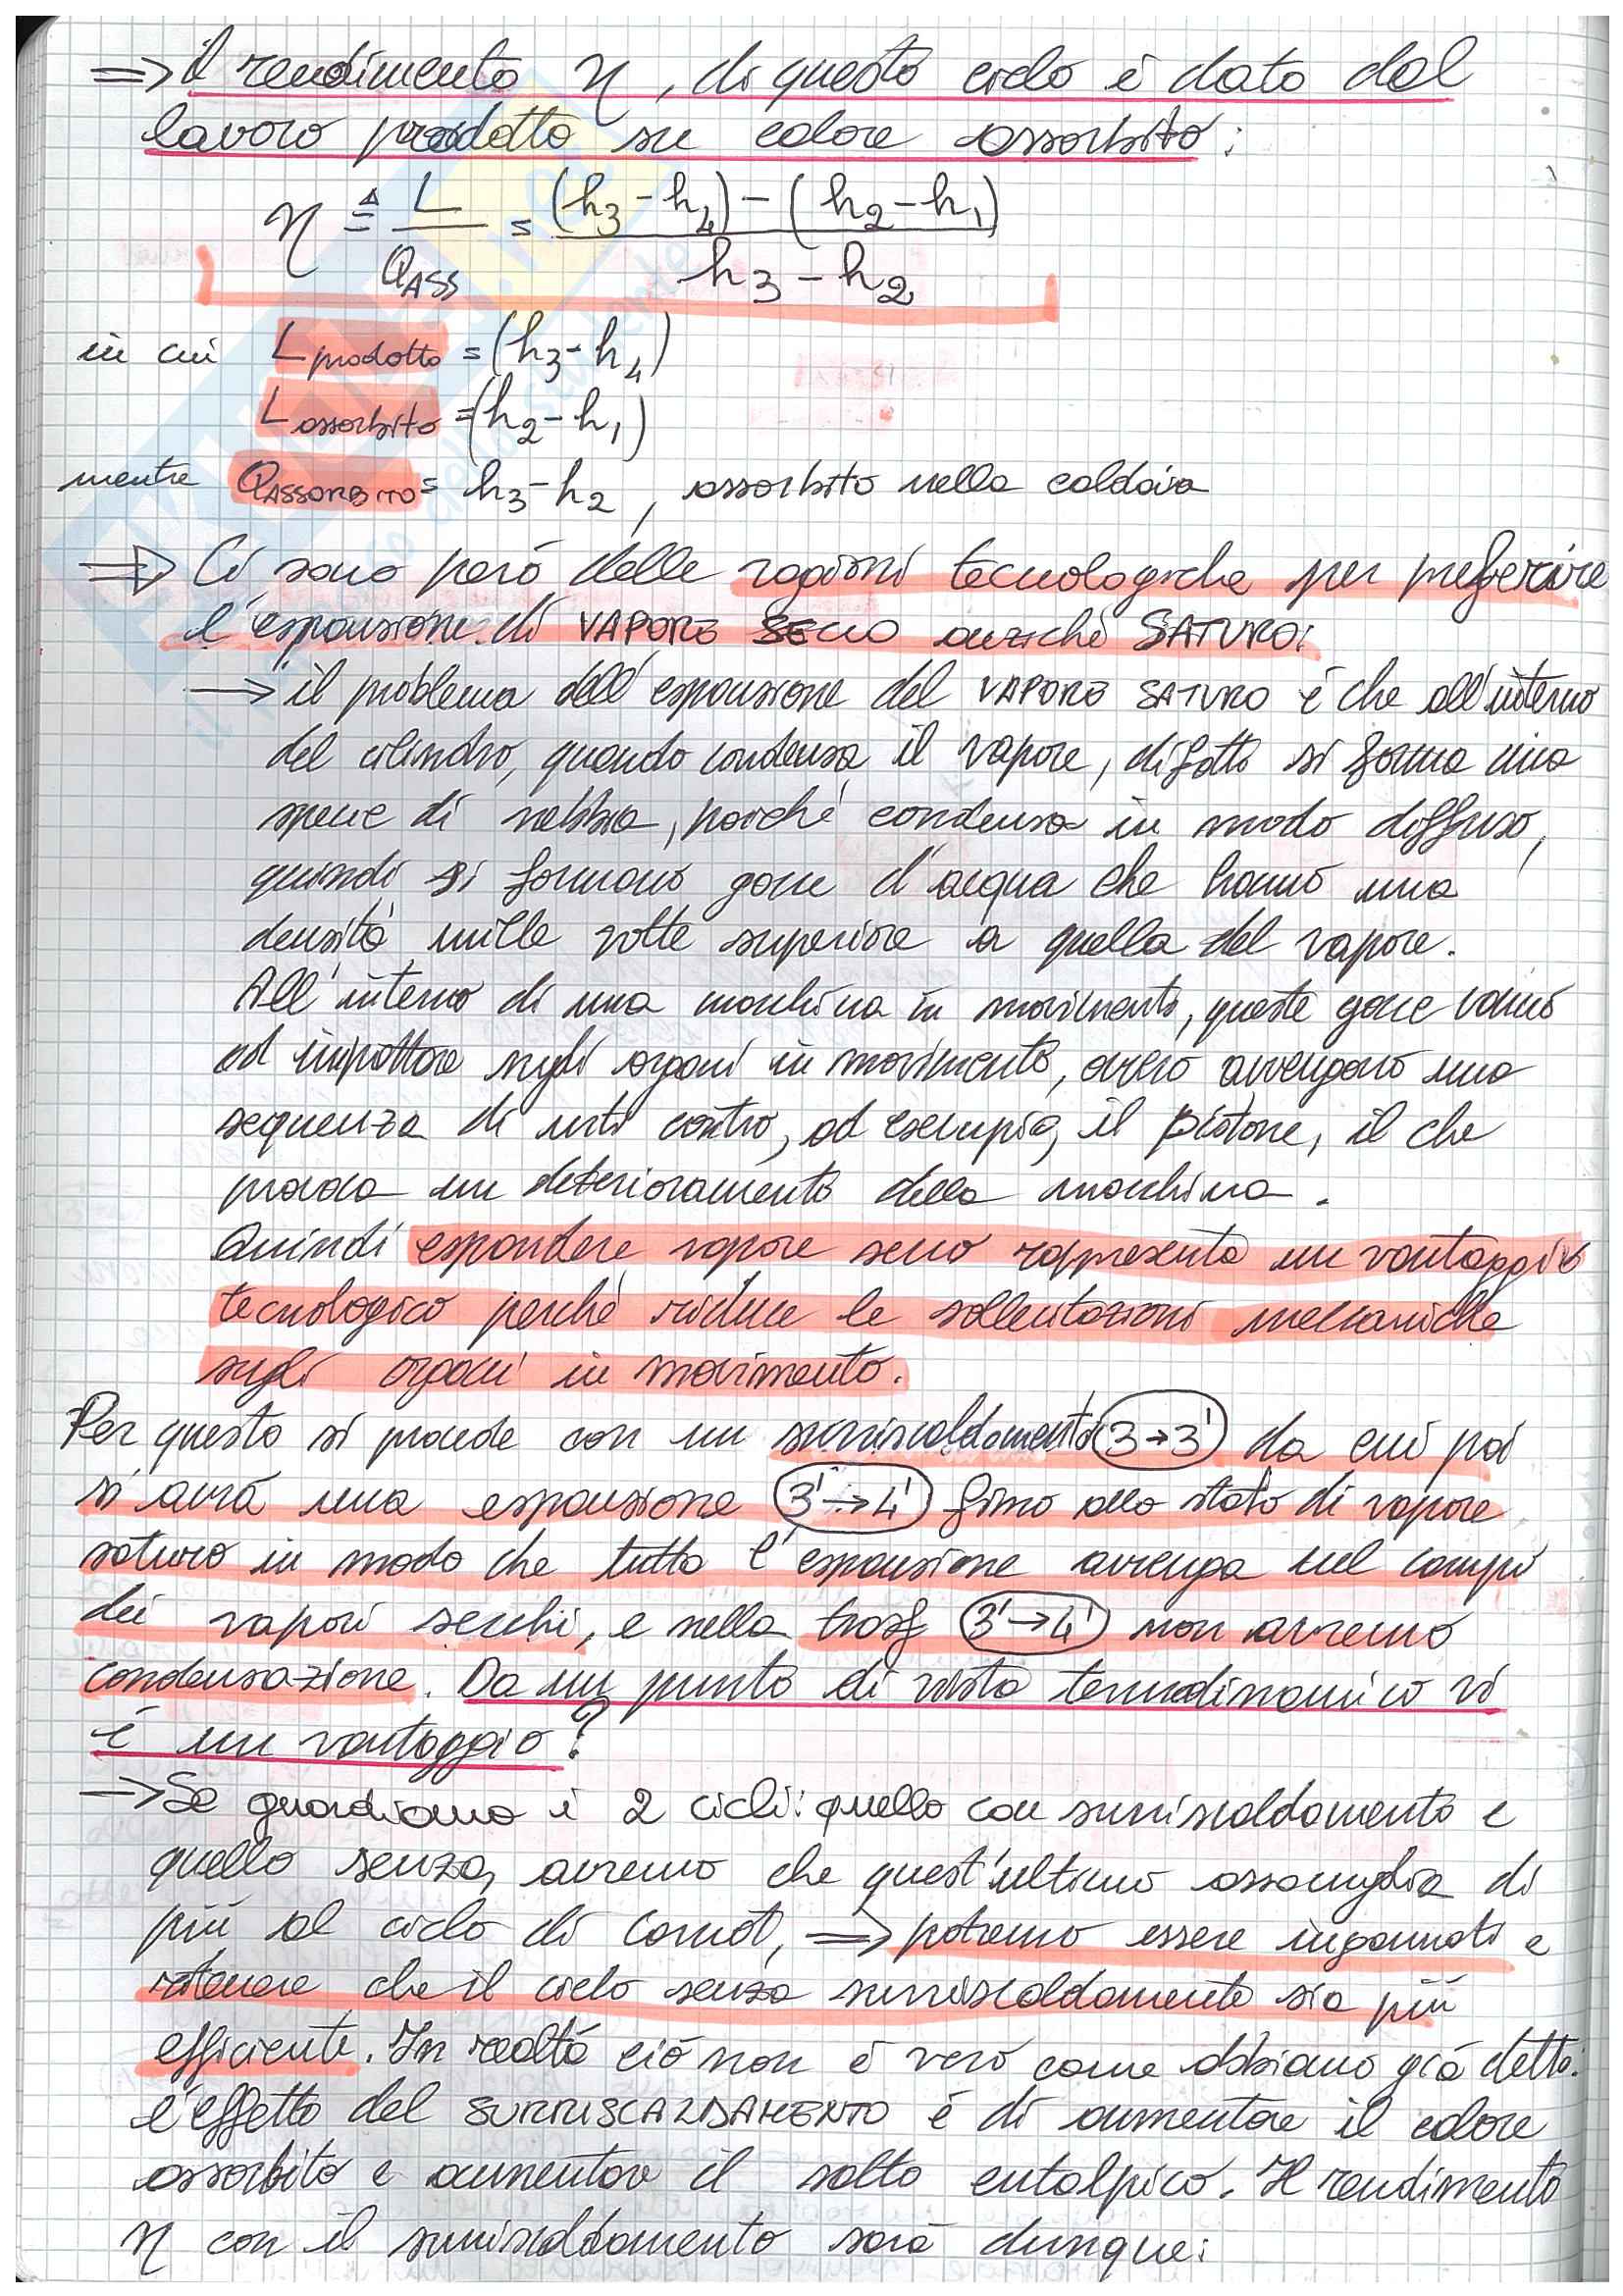 ⇒ il rendimento η, di questo ciclo è dato dal
lavoro prodotto su calore assorbito:
η ≜ L / Q_ASS = (h₃-h₄)-(h₂-h₁) / h₃-h₂
in cui L prodotto = (h₃-h₄)
L assorbito = (h₂-h₁)
mentre Q ASSORBITO = h₃-h₂, assorbito nella caldaia
⇒ Ci sono però delle ragioni tecnologiche per preferire
l'espansione di VAPORE SECCO anziché SATURO:
→ il problema dell'espansione del VAPORE SATURO è che all'interno
del cilindro, quando condensa il vapore, difatti si forma una
specie di nebbia, poiché condensa in modo diffuso,
quindi si formano gocce d'acqua che hanno una
densità mille volte superiore a quella del vapore.
All'interno di una macchina in movimento, queste gocce vanno
ad impattare sugli organi in movimento, ovvero avvengono una
sequenza di urti contro, ad esempio, il pistone, il che
provoca un deterioramento della macchina.
Quindi espandere vapore secco rappresenta un vantaggio
tecnologico perché riduce le sollecitazioni meccaniche
sugli organi in movimento.
Per questo si procede con un surriscaldamento 3→3' da cui poi
si avrà una espansione 3'→4' fino allo stato di vapore
saturo in modo che tutta l'espansione avvenga nel campo
dei vapori secchi, e nella trasf 3'→4' non avremo
condensazione. Da un punto di vista termodinamico vi
è un vantaggio?
→ Se guardiamo i 2 cicli: quello con surriscaldamento e
quello senza, avremo che quest'ultimo assomiglia di
più al ciclo di Carnot, ⇒ potremo essere ingannati e
ritenere che il ciclo senza surriscaldamento sia più
efficiente. In realtà ciò non è vero come abbiamo già detto:
l'effetto del SURRISCALDAMENTO è di aumentare il calore
assorbito e aumentare il salto entalpico. Il rendimento
η con il surriscaldamento sarà dunque: